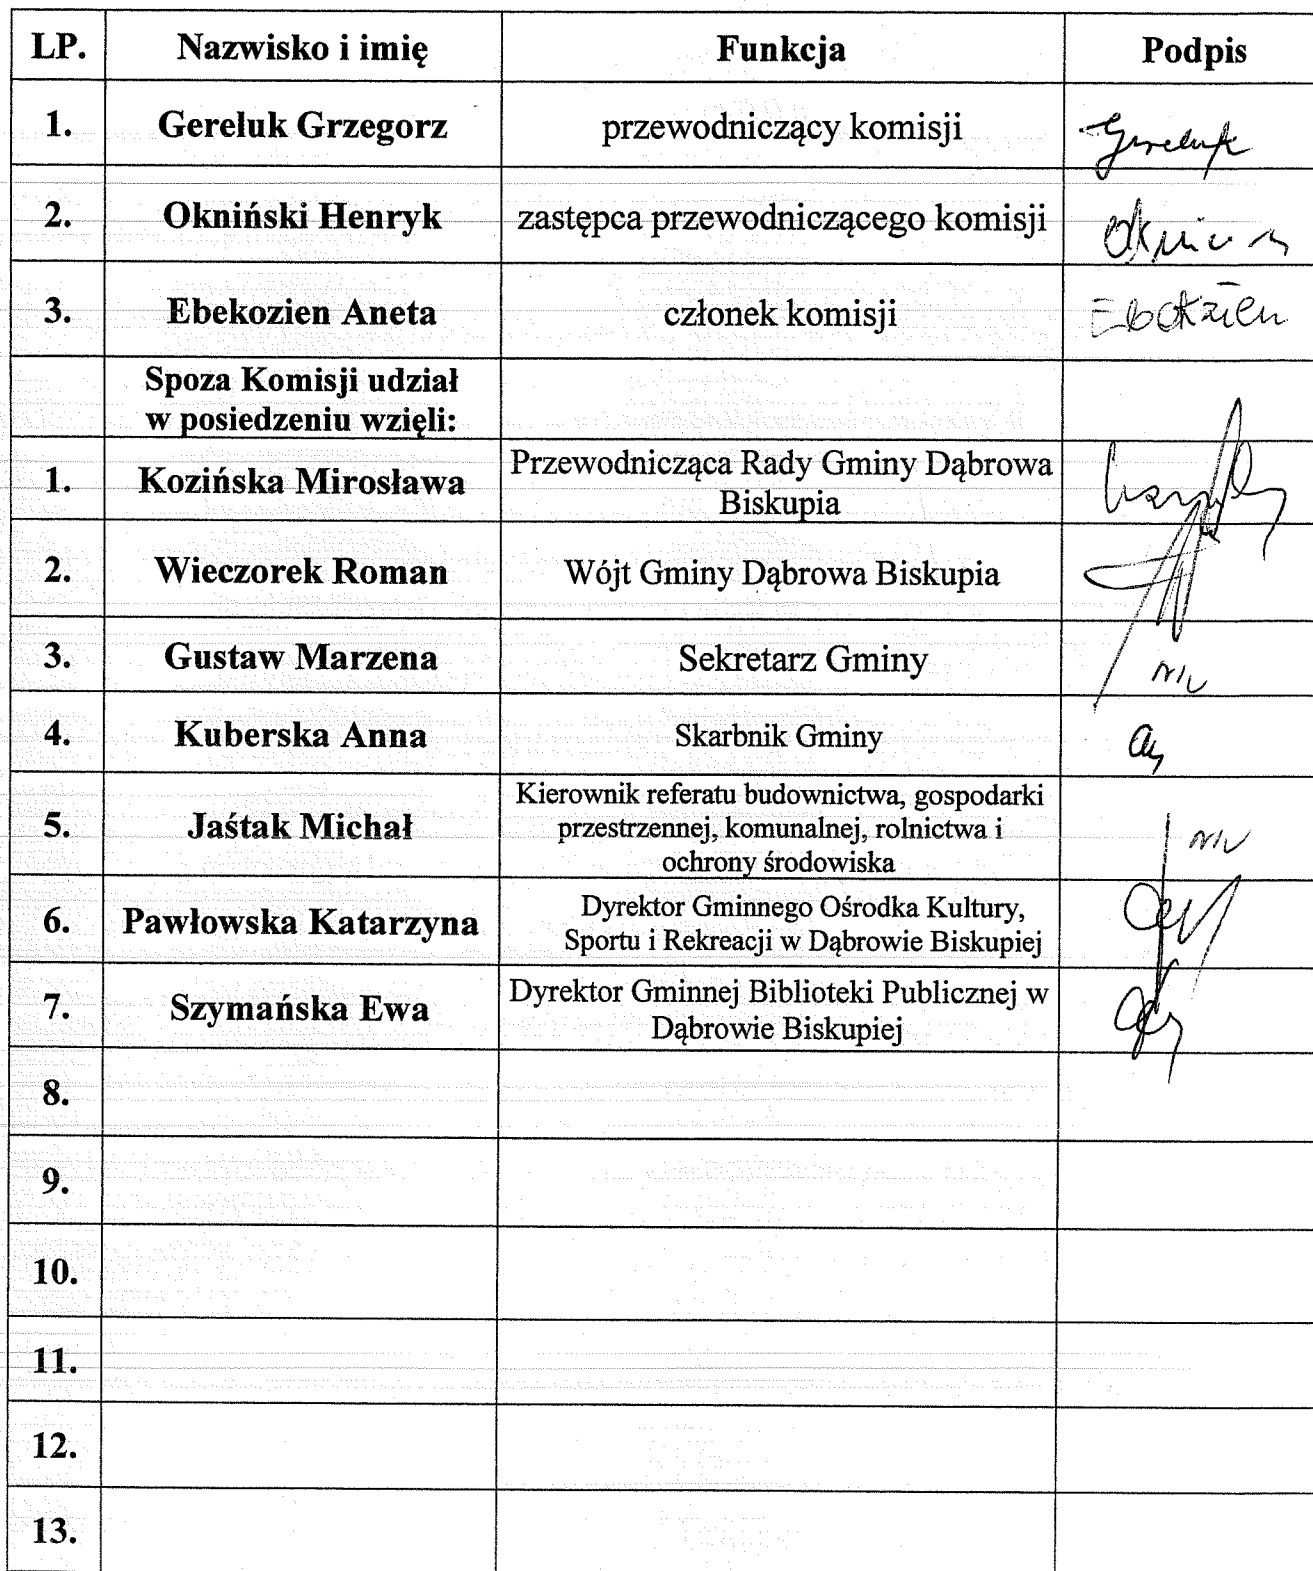 LP. Nazwisko i imię Funkcja Podpis
1. Gereluk Grzegorz przewodniczący komisji Gereluk
2. Okniński Henryk zastępca przewodniczącego komisji
3. Ebekozien Aneta członek komisji Ebekozien
Spoza Komisji udział
w posiedzeniu wzięli:
1. Kozińska Mirosława Przewodnicząca Rady Gminy Dąbrowa
Biskupia
2. Wieczorek Roman Wójt Gminy Dąbrowa Biskupia
3. Gustaw Marzena Sekretarz Gminy
4. Kuberska Anna Skarbnik Gminy
5. Jaśtak Michał Kierownik referatu budownictwa, gospodarki
przestrzennej, komunalnej, rolnictwa i
ochrony środowiska
6. Pawłowska Katarzyna Dyrektor Gminnego Ośrodka Kultury,
Sportu i Rekreacji w Dąbrowie Biskupiej
7. Szymańska Ewa Dyrektor Gminnej Biblioteki Publicznej w
Dąbrowie Biskupiej
8.
9.
10.
11.
12.
13.